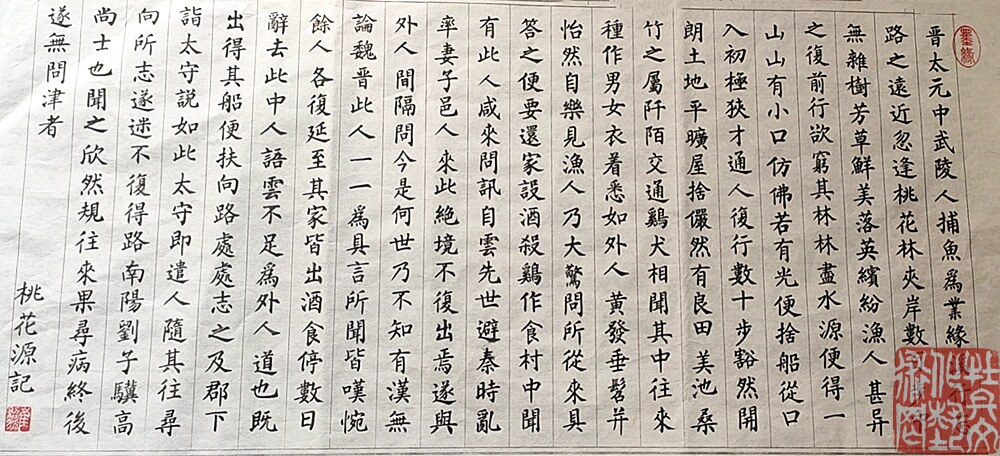 墨緣
晋太元中武陵人捕魚爲業緣
路之遠近忽逢桃花林夾岸數
無雜樹芳草鮮美落英繽紛漁人甚异
之復前行欲窮其林林盡水源便得一
山山有小口仿佛若有光便捨船從口
入初極狹才通人復行數十步豁然開
朗土地平曠屋捨儼然有良田美池桑
竹之屬阡陌交通鷄犬相聞其中往來
種作男女衣着悉如外人黃發垂髫并
怡然自樂見漁人乃大驚問所從來具
答之便要還家設酒殺鷄作食村中聞
有此人咸來問訊自雲先世避秦時亂
率妻子邑人來此絕境不復出焉遂與
外人間隔問今是何世乃不知有漢無
論魏晉此人一一爲具言所聞皆嘆惋
餘人各復延至其家皆出酒食停數日
辭去此中人語雲不足爲外人道也既
出得其船便扶向路處處志之及郡下
詣太守説如此太守即遣人隨其往尋
向所志遂迷不復得路南陽劉子驥高
尚士也聞之欣然規往來果尋病終後
遂無問津者
桃花源記